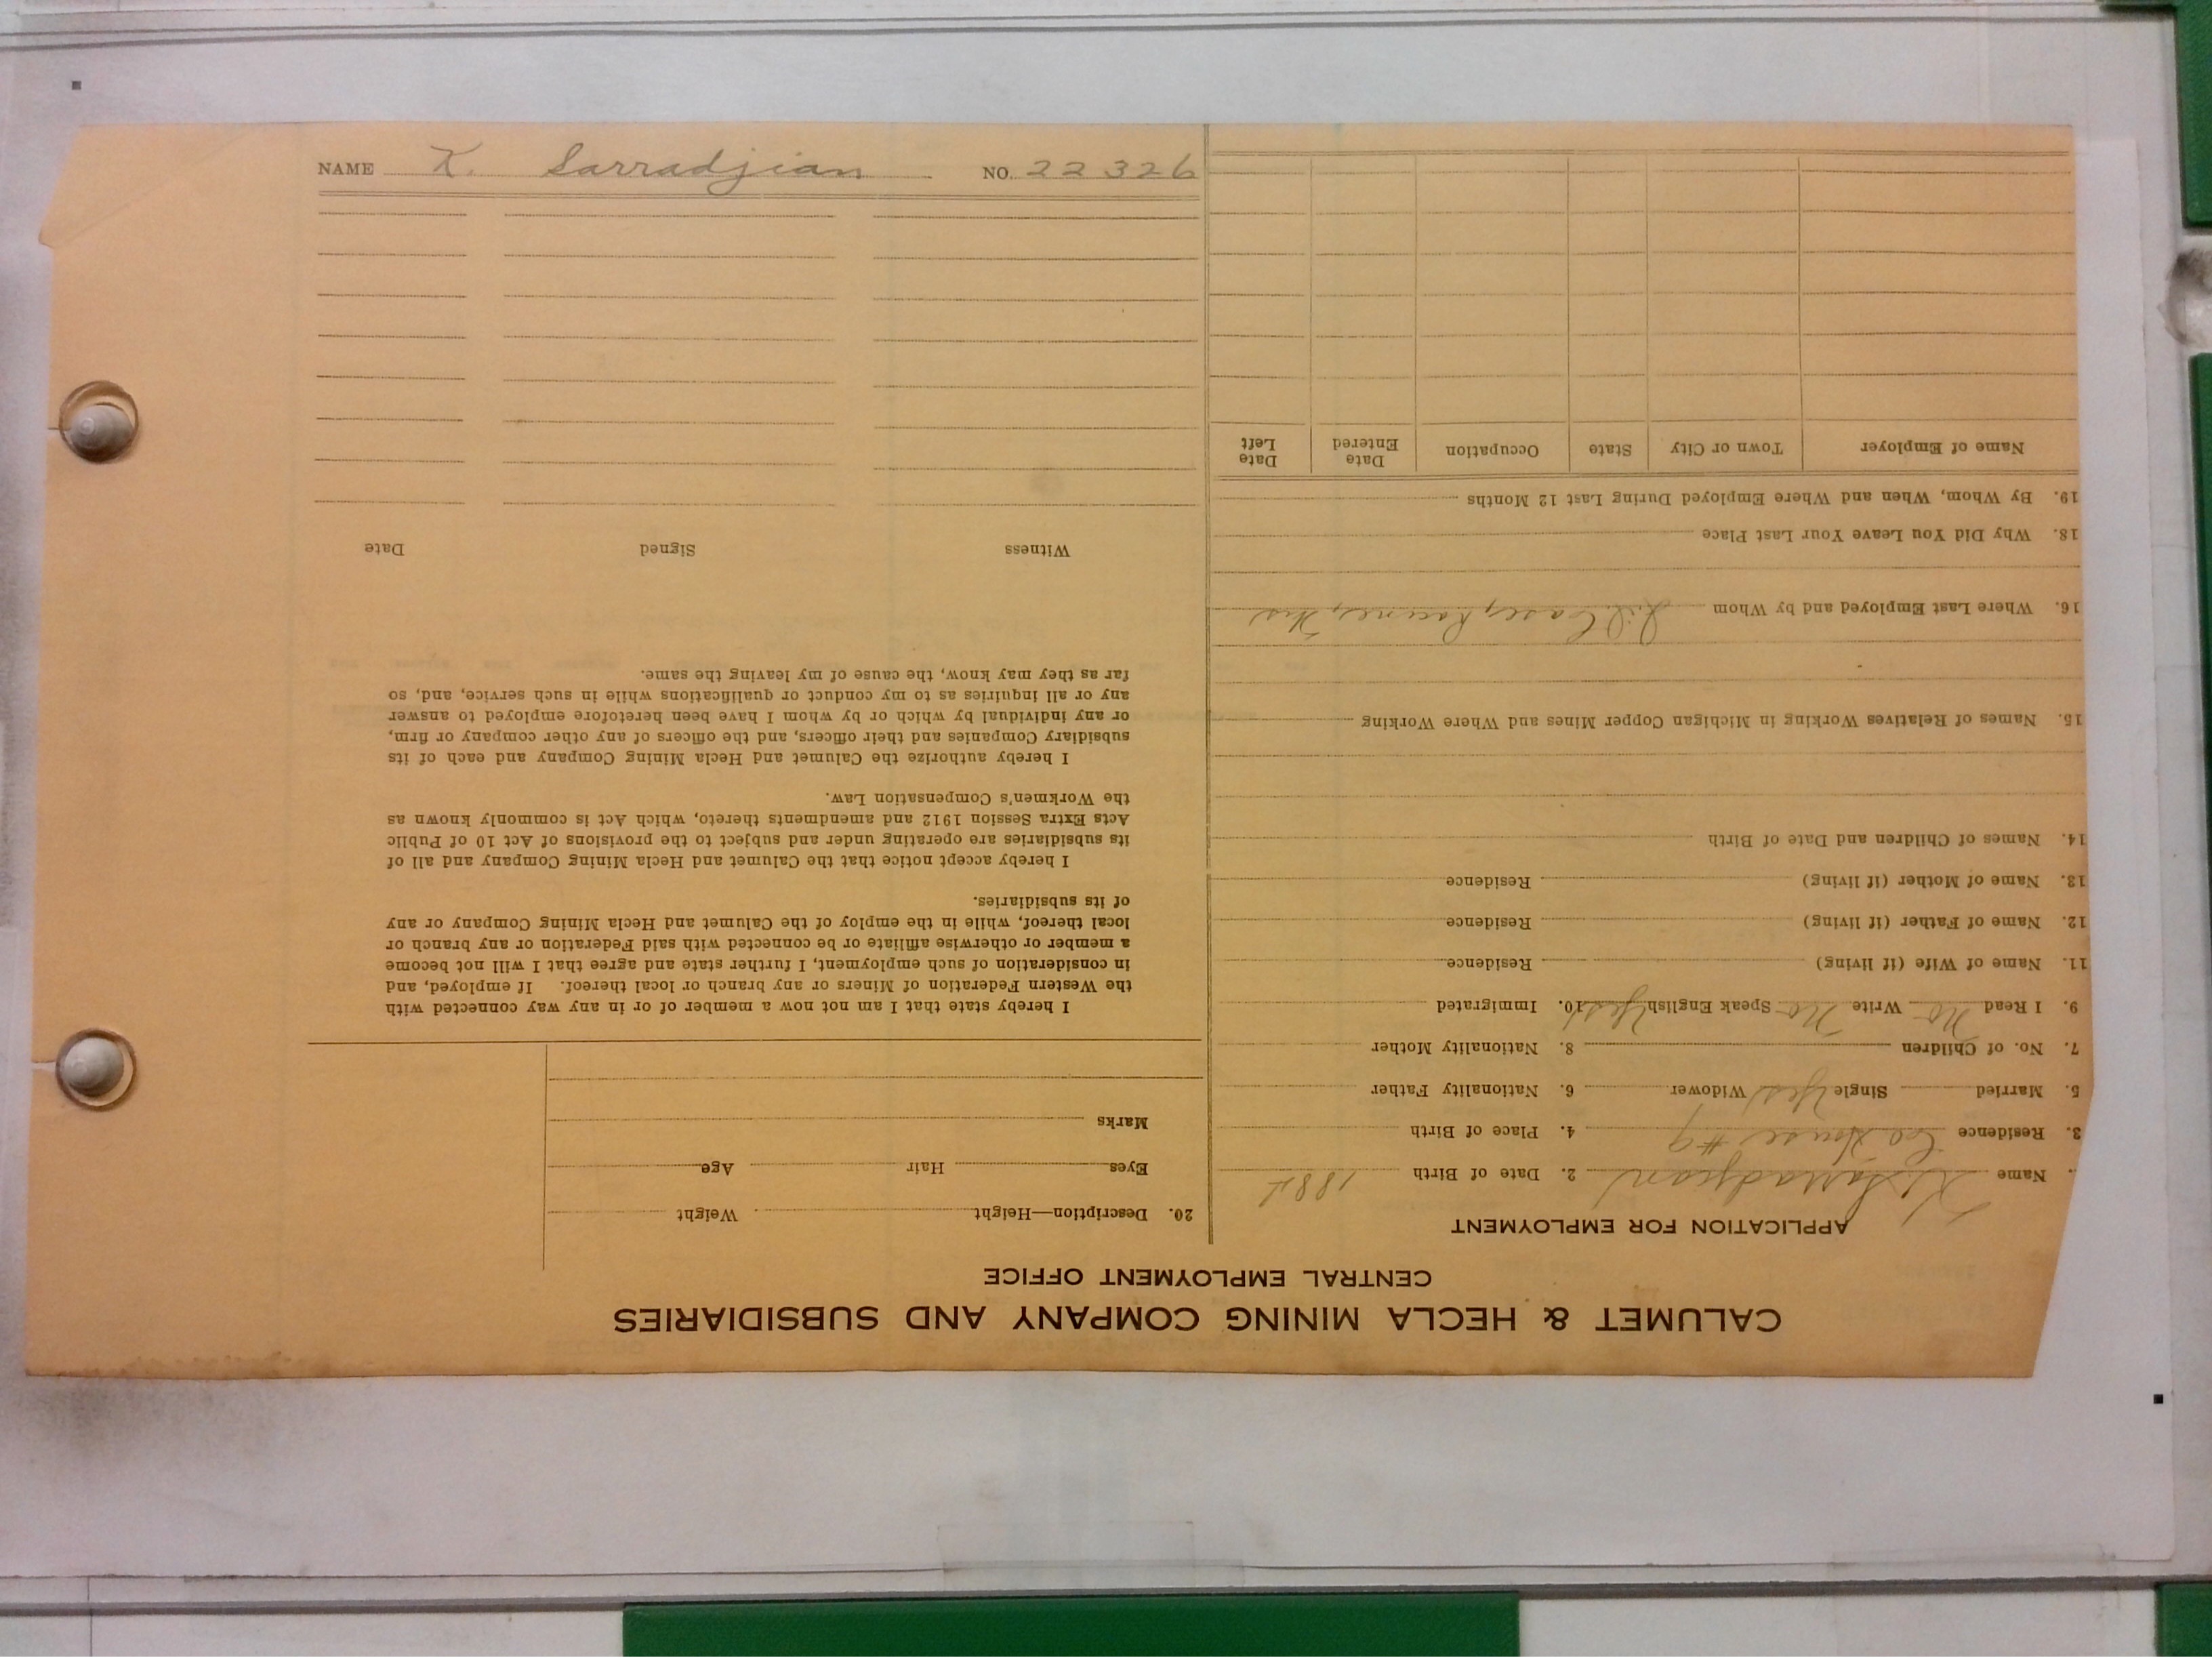 CALUMET & HECLA MINING COMPANY AND SUBSIDIARIES
CENTRAL EMPLOYMENT OFFICE
APPLICATION FOR EMPLOYMENT
Name K. Sarradjian 2. Date of Birth 1881
3. Residence Co House #9 4. Place of Birth
5. Married Single Yes Widower 6. Nationality Father
7. No. of Children 8. Nationality Mother
9. I Read No Write No Speak English Yes 10. Immigrated
11. Name of Wife (if living) Residence
12. Name of Father (if living) Residence
13. Name of Mother (if living) Residence
14. Names of Children and Date of Birth
15. Names of Relatives Working in Michigan Copper Mines and Where Working
16. Where Last Employed and by Whom Case, Racine, Wis
18. Why Did You Leave Your Last Place
19. By Whom, When and Where Employed During Last 12 Months
Name of Employer Town or City State Occupation Date Entered Date Left
20. Description—Height Weight
Eyes Hair Age
Marks
I hereby state that I am not now a member of or in any way connected with
the Western Federation of Miners or any branch or local thereof. If employed, and
in consideration of such employment, I further state and agree that I will not become
a member or otherwise affiliate or be connected with said Federation or any branch or
local thereof, while in the employ of the Calumet and Hecla Mining Company or any
of its subsidiaries.
I hereby accept notice that the Calumet and Hecla Mining Company and all of
its subsidiaries are operating under and subject to the provisions of Act 10 of Public
Acts Extra Session 1912 and amendments thereto, which Act is commonly known as
the Workmen's Compensation Law.
I hereby authorize the Calumet and Hecla Mining Company and each of its
subsidiary Companies and their officers, and the officers of any other company or firm,
or any individual by which or by whom I have been heretofore employed to answer
any or all inquiries as to my conduct or qualifications while in such service, and, so
far as they may know, the cause of my leaving the same.
Witness Signed Date
NAME K. Sarradjian NO. 22326